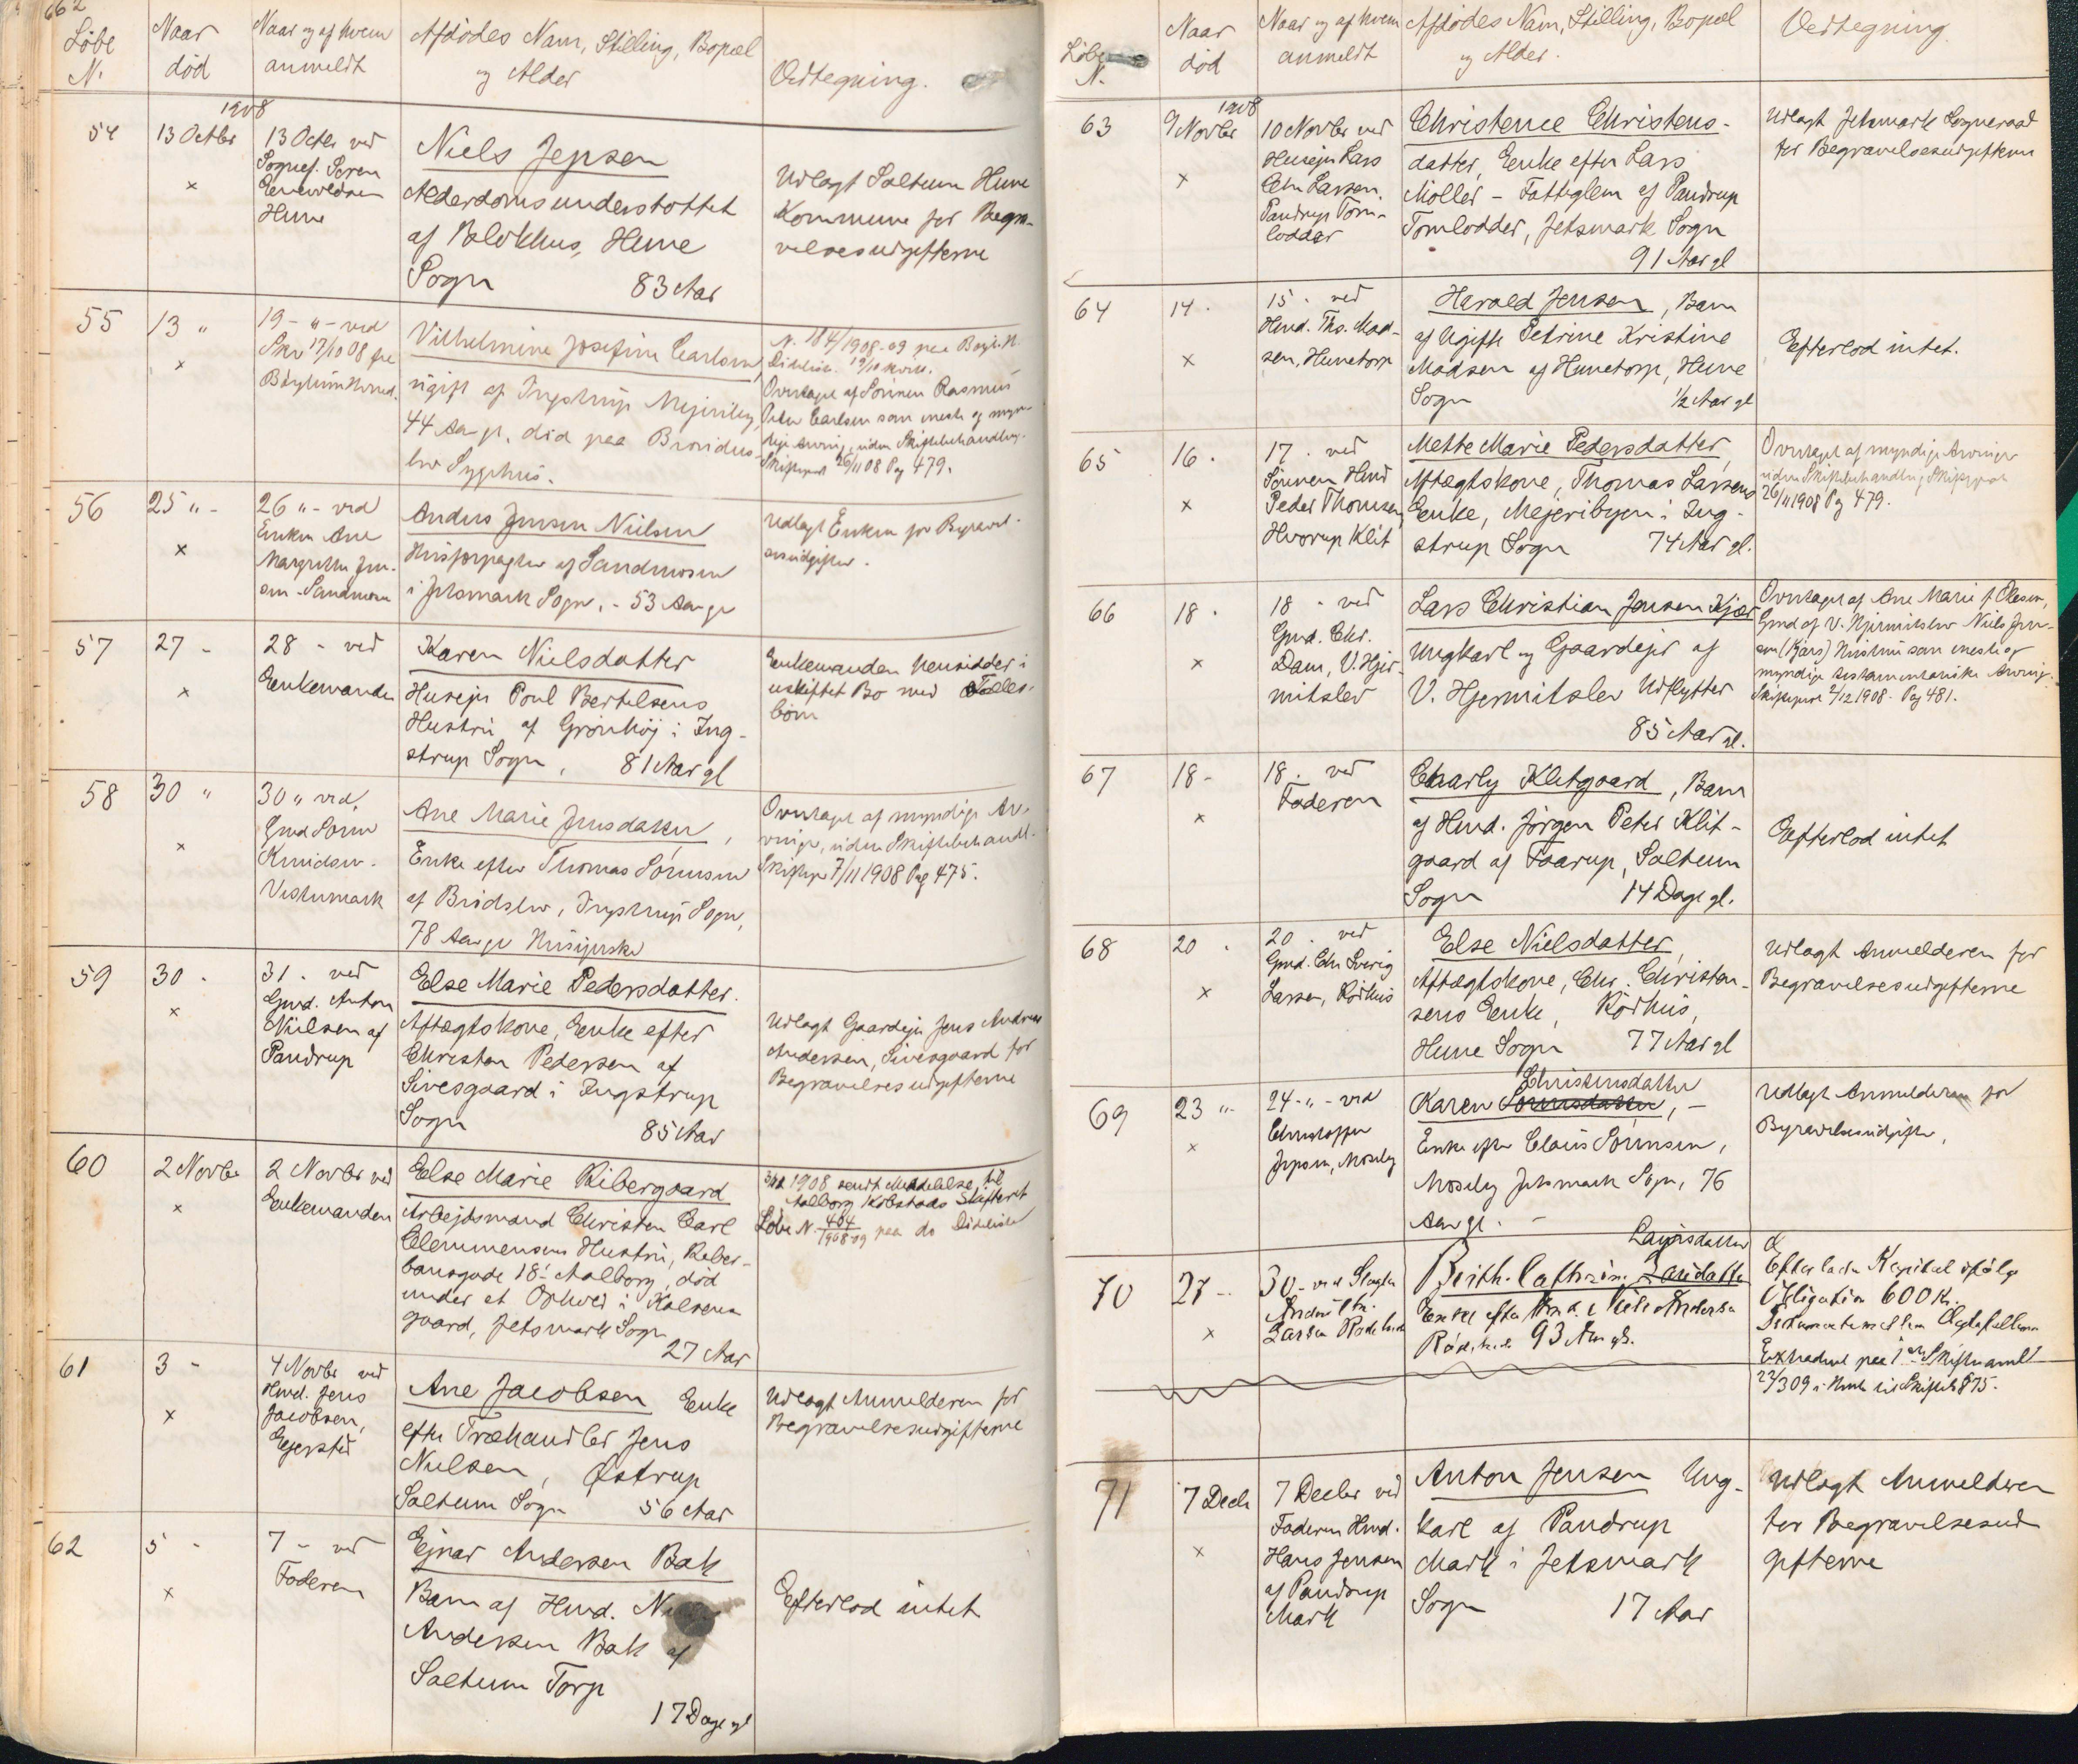 662
Löbe
N.
Naar
död
Naar og af hvem
anmeldt
Afdödes Navn, Stilling, Bopæl
og Alder
Vedtegning.
1908
54
13 Octbr
x
13 Octbr ved
Sognef. Sören
Hune
Niels Jepsen
Alderdomsunderstøttet
af Blokhus, Hune
Sogn 83 Aar
Udlagt Saltum Hune
Kommune for Begra-
velsesudgifterne
55
13 "
x
19 - " - ved
Skr 17/10 08 fra
Vilhelmine Josefine Carlsen,
ugift af Ingstrup Mejeriby,
44 Aar gl. död paa Brovst
Sygehus.
N. 184/1908-09 paa
Overtaget af Sönnen Rasmus
Peter Carlsen som eneste og myn-
dige Arving uden Skiftebehandling.
Skifteprot 26/11 08 Pag 479.
56
25 " -
x
26 " - ved
Enken Ane
Margrethe Jen-
sen - Sandmosen
Anders Jensen Nielsen
Husforpagter af Sandmosen
i Jetsmark Sogn, - 53 Aar gl
Udlagt Enken for Begravel-
sesudgifter.
57
27 -
x
28 - ved
Enkemanden
Karen Nielsdatter
Husejer Poul Bertelsens
Hustru af Grönhöj i Ing-
strup Sogn, 81 Aar gl
Enkemanden hensidder i
uskiftet Bo med Fælles-
börn
58
30 "
x
30 " ved
Gmd Sören
Knudsen.
Vestermark
Ane Marie Jensdatter,
Enke efter Thomas Sörensen
af Bredslev, Ingstrup Sogn,
78 Aar gl Husejerske
Overtaget af myndige Ar-
vinger, uden Skiftebehandl.
Skiftepr 7/11 1908 Pag 475.
59
30 -
x
31 . ved
Gmd. Anton
Nielsen af
Pandrup
Else Marie Pedersdatter.
Aftægtskone, Enke efter
Christen Pedersen af
Sivesgaard i Ingstrup
Sogn 85 Aar
Udlagt Gaardejer Jens Andreas
Andersen, Sivesgaard for
Begravelsesudgifterne
60
2 Novbr
x
2 Novbr ved
Enkemanden
Else Marie Ribergaard
Arbejdsmand Christen Carl
Clemmensens Hustru, Reber-
bansgade 18 - Aalborg, död
under et Ophold i Kalsens
gaard, Jetsmark Sogn
27 Aar
1908 sendt Meddelelse til
Aalborg Kobstads Skifteret
Löbe N. 404/1908-09 paa do Dödsliste
61
3 -
x
4 Novbr ved
Hmd. Jens
Jacobsen,
Ejersted
Ane Jacobsen Enke
efter Træhandler Jens
Nielsen, Østrup
Saltum Sogn 56 Aar
Udlagt Anmelderen for
Begravelsesudgifterne
62
5 -
x
7 - ved
Faderen
Ejnar Andersen Bak
Barn af Hmd.
Andersen Bak af
Saltum Torp
17 Dage gl
Efterlod intet
Löbe
N.
Naar
död
Naar og af hvem
anmeldt
Afdödes Navn, Stilling, Bopæl
og Alder.
Vedtegning.
1908
63
9 Novbr
x
10 Novbr ved
Husejer Lars
Chr Larsen.
Pandrup Torn-
lodder
Christence Christens-
datter, Enke efter Lars
Möller - Fattiglem af Pandrup
Tornlodder, Jetsmark Sogn
91 Aar gl
Udlagt Jetsmark Sogneraad
for Begravelsesudgifterne
64
14 .
x
15 . ved
Hmd. Ths. Mad-
sen, Hunetorp
Harald Jensen, Barn
af Ugifte Petrine Kristine
Madsen af Hunetorp, Hune
Sogn 1/2 Aar gl
Efterlod intet.
65
16 .
x
17 . ved
Sönnen Hmd
Peder Thomsen,
Hvorup Klit
Mette Marie Pedersdatter,
Aftægtskone, Thomas Larsens
Enke, Mejeribyen i Ing-
strup Sogn 74 Aar gl.
Overtaget af myndige Arvinger
uden Skiftebehandling Skifteprot
26/11 1908 Pag 479.
66
18 .
x
18 - ved
Gmd. Chr.
Dam, V. Hjer-
mitslev
Lars Christian Jensen Kjær
Ungkarl og Gaardejer af
V. Hjermitslev Udflytter
85 Aar gl.
Overtaget af Ane Marie f. Olesen,
Gmd af V. Hjermitslev Niels Jen-
sen (Kjærs) Hustru som eneste og
myndige testamentariske Arving.
Skifteprot 2/12 1908 - Pag 481.
67
18 -
x
18 . ved
Faderen
Charly Klitgaard, Barn
af Hmd. Jörgen Peter Klit-
gaard af Faarup, Saltum
Sogn 14 Dage gl.
Efterlod intet
68
20 .
x
20 . ved
Gmd. Chr
Larsen, Rödhus
Else Nielsdatter,
Aftægtskone, Chr. Christen-
sens Enke, Rödhus,
Hune Sogn 77 Aar gl
Udlagt Anmelderen for
Begravelsesudgifterne
69
23 " -
x
24 - " - ved
Christoffer
Jepsen, Moseby
Christensdatter
Karen Sörensdatter, -
Enke efter Claus Sörensen,
Moseby Jetsmark Sogn, 76
Aar gl. -
Udlagt Anmelderen for
Begravelsesudgifter,
70
27 -
x
30 - ved
Larsen Rödhus
Lauridsdatter
Birthe Cathrine
Enke efter Hmd. Niels Andersen
Rödhus 93 Aar gl.
Efterlader Kapital ifölge
Obligation 600 Kr.
Extraheret paa
71
7 Decb
x
7 Decbr ved
Faderen Hmd.
Hans Jensen
af Pandrup
Mark
Anton Jensen Ung-
karl af Pandrup
Mark i Jetsmark
Sogn 17 Aar
Udlagt Anmelderen
for Begravelsesud
gifterne